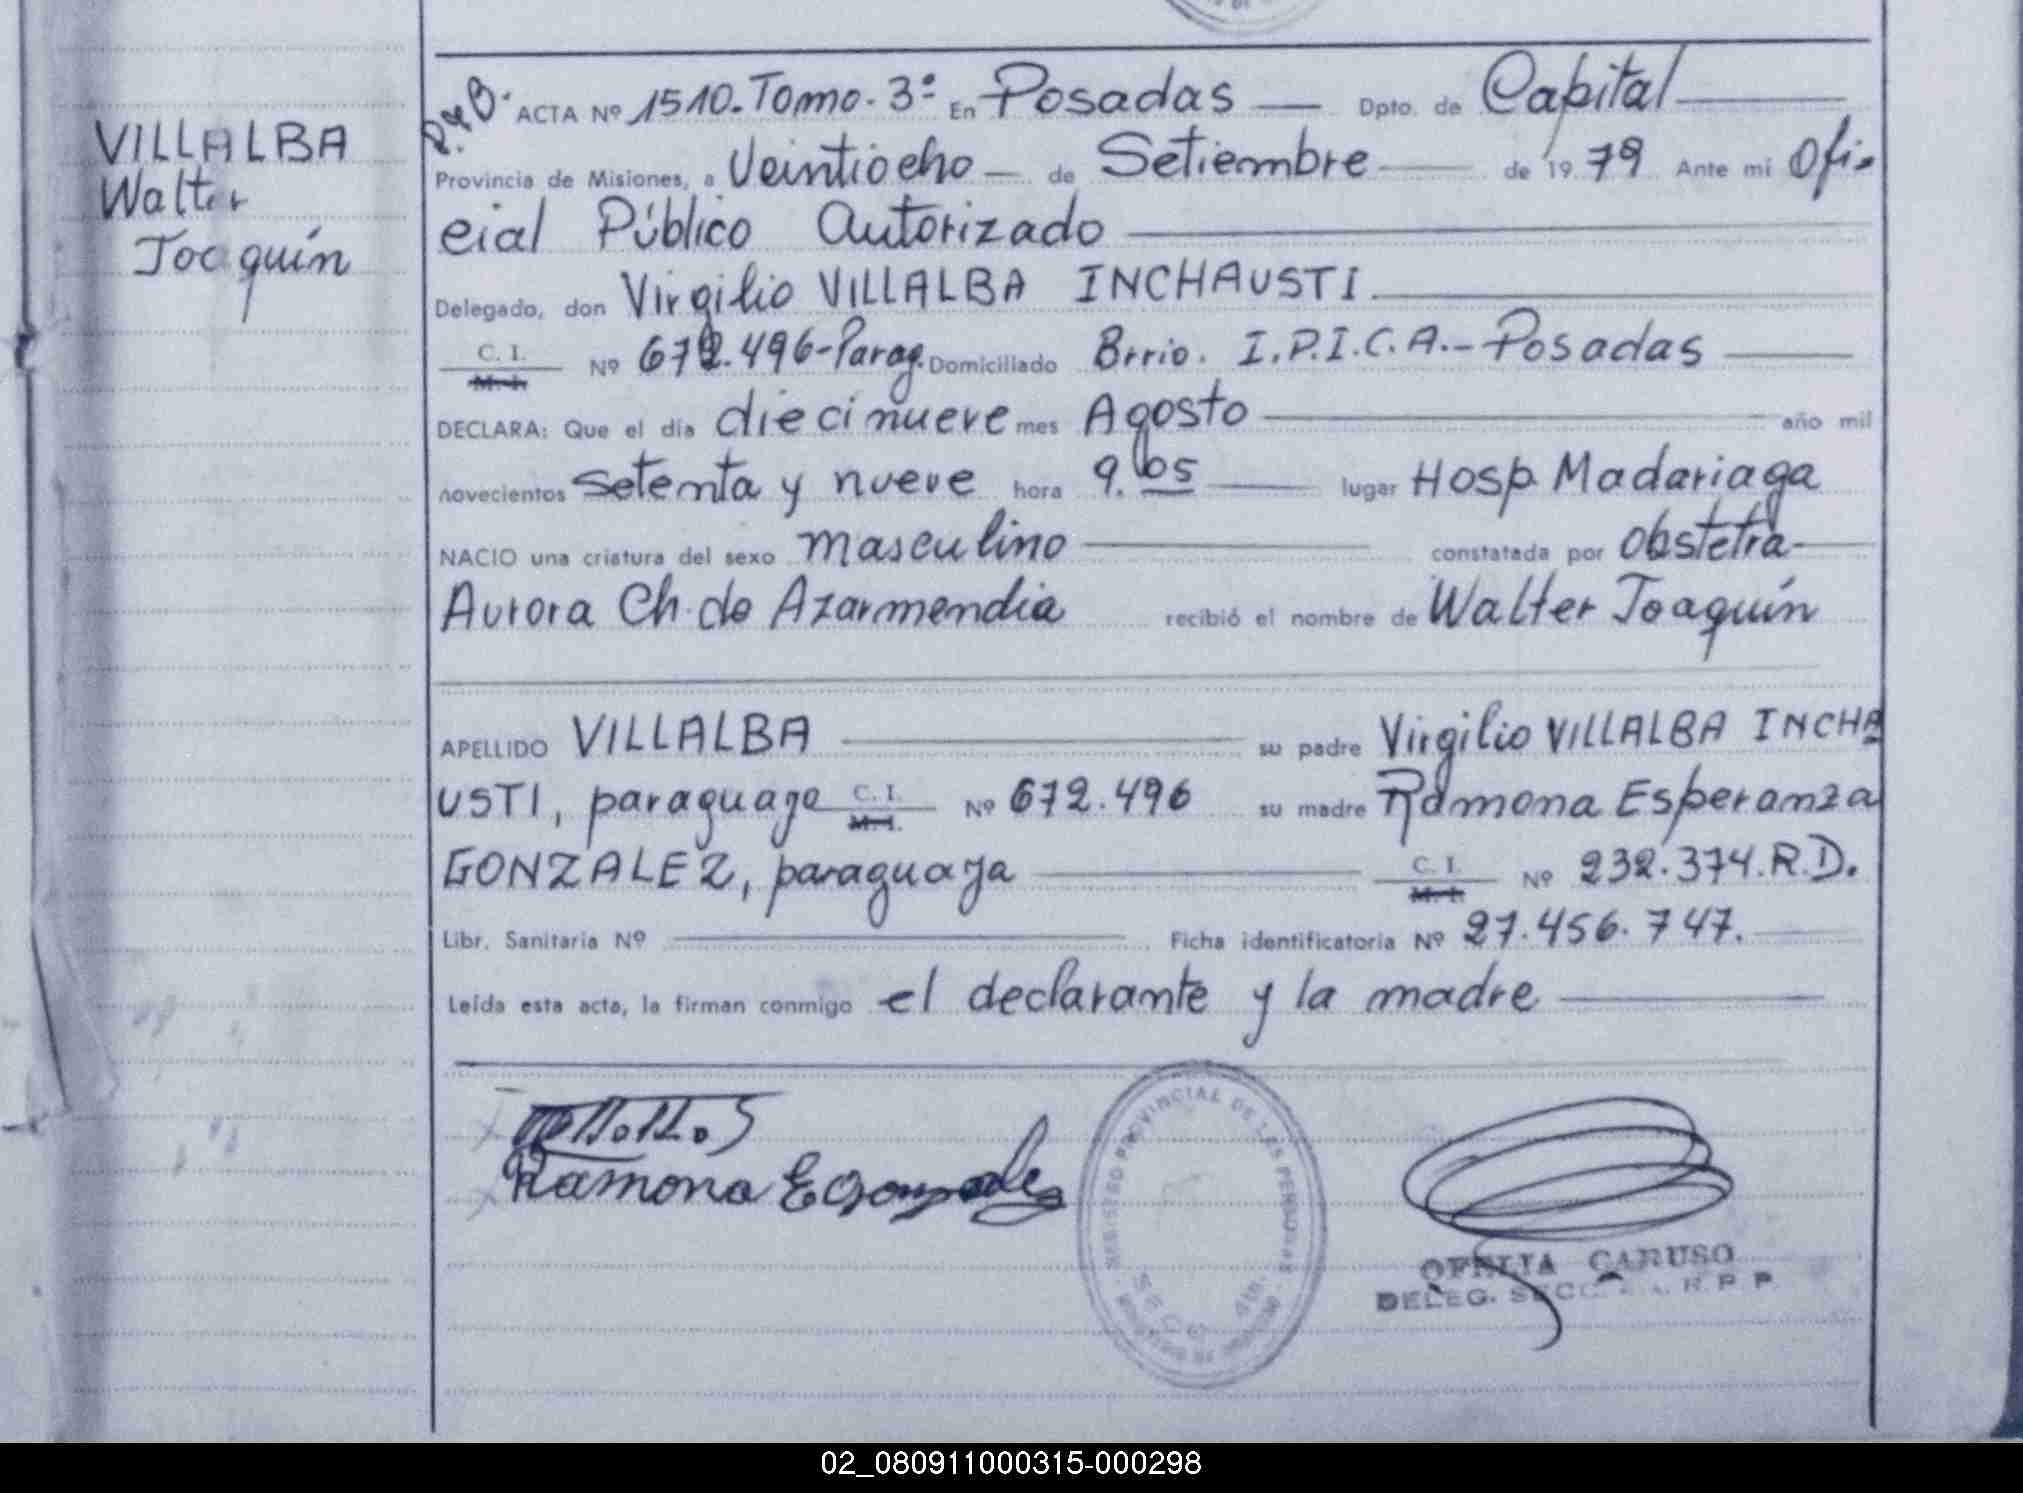 VILLALBA
Walter
Joaquín
P. y B. ACTA Nº 1510. Tomo. 3º En Posadas Dpto. de Capital
Provincia de Misiones, a Veintiocho de Setiembre de 1979 Ante mi Ofi-
cial Público Autorizado
Delegado, don Virgilio VILLALBA INCHAUSTI
C. I. M. I. Nº 672.496-Parag. Domiciliado Brrio. I.P.I.C.A.- Posadas
DECLARA: Que el día diecinueve mes Agosto año mil
novecientos setenta y nueve hora 9.05 lugar Hosp. Madariaga
NACIO una criatura del sexo masculino constatada por obstetra
Aurora Ch. de Azarmendia recibió el nombre de Walter Joaquín
APELLIDO VILLALBA su padre Virgilio VILLALBA INCHA
USTI, paraguayo C. I. M. I. Nº 672.496 su madre Ramona Esperanza
GONZALEZ, paraguaya C. I. M. I. Nº 232.374.R.D.
Libr. Sanitaria Nº Ficha identificatoria Nº 27.456.747.
Leída esta acta, la firman conmigo el declarante y la madre
Ramona E Gonzalez
REGISTRO PROVINCIAL DE LAS PERSONAS
SECC. 4ta.
OFELIA CARUSO
DELEG. SECC. R. P. P.
02_080911000315-000298